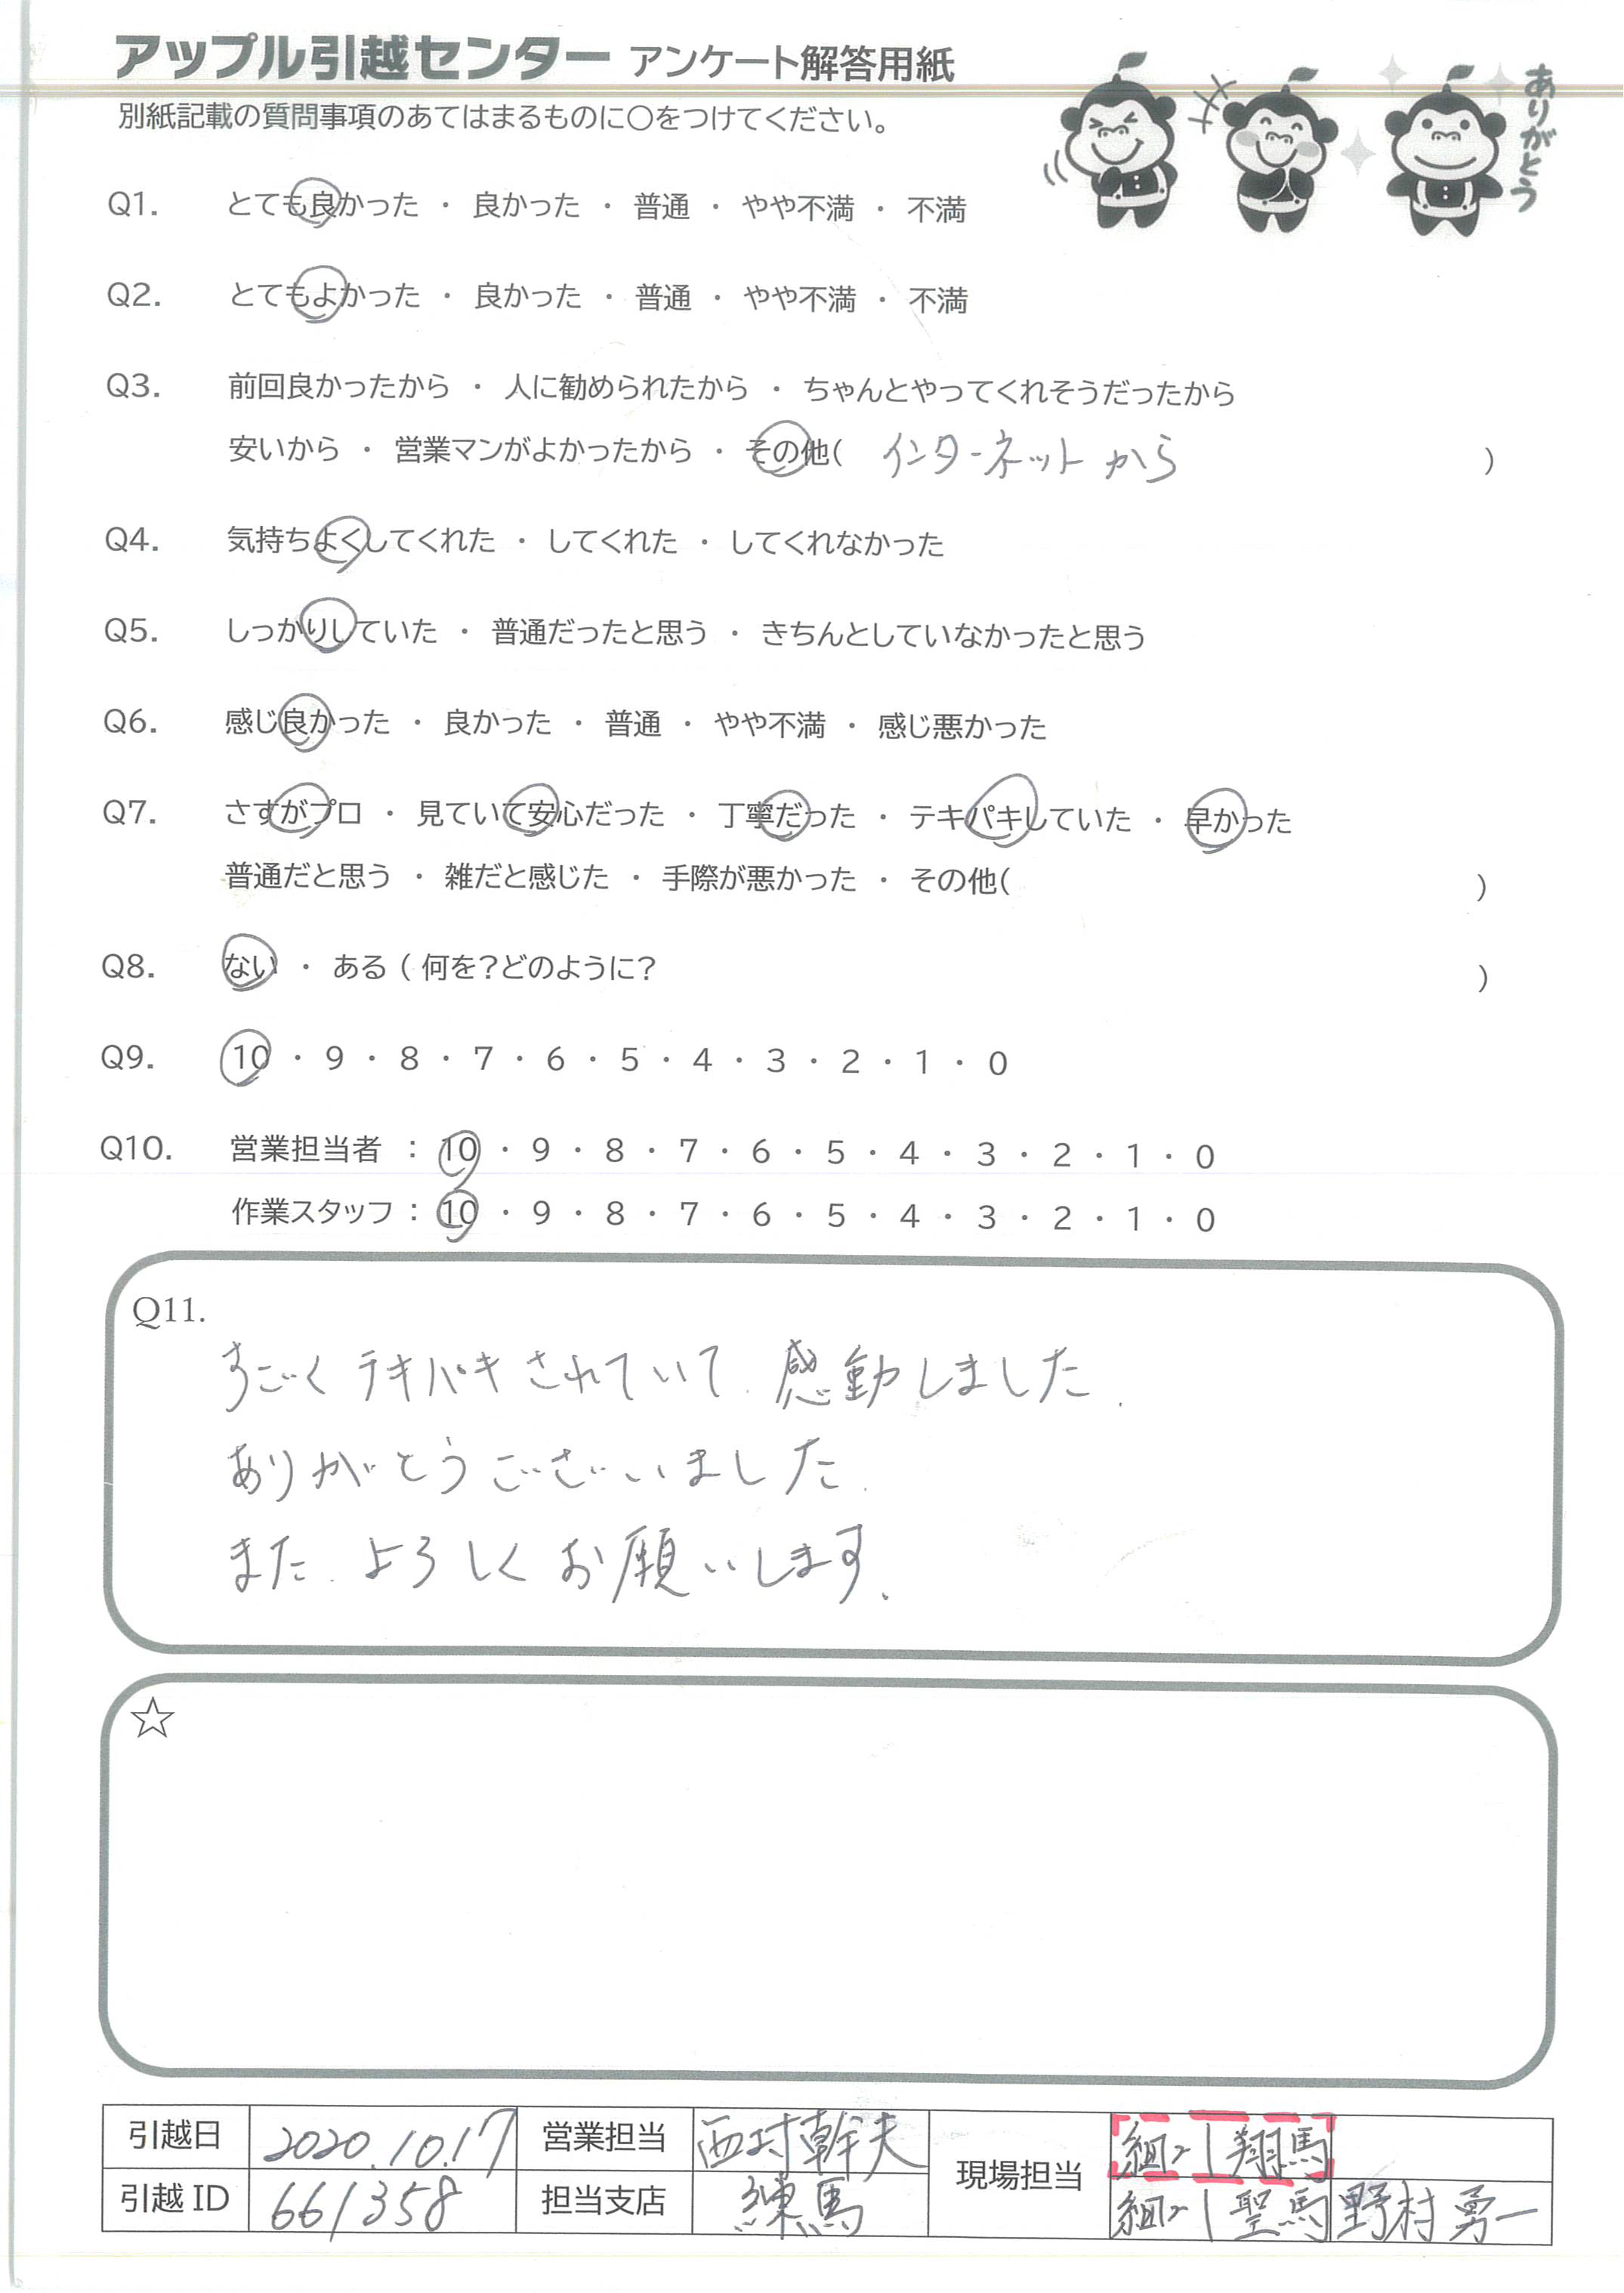 アップル引越センター アンケート解答用紙
別紙記載の質問事項のあてはまるものに○をつけてください。
ありがとう
Q1. とても良かった ・ 良かった ・ 普通 ・ やや不満 ・ 不満
Q2. とてもよかった ・ 良かった ・ 普通 ・ やや不満 ・ 不満
Q3. 前回良かったから ・ 人に勧められたから ・ ちゃんとやってくれそうだったから
安いから ・ 営業マンがよかったから ・ その他( インターネットから )
Q4. 気持ちよくしてくれた ・ してくれた ・ してくれなかった
Q5. しっかりしていた ・ 普通だったと思う ・ きちんとしていなかったと思う
Q6. 感じ良かった ・ 良かった ・ 普通 ・ やや不満 ・ 感じ悪かった
Q7. さすがプロ ・ 見ていて安心だった ・ 丁寧だった ・ テキパキしていた ・ 早かった
普通だと思う ・ 雑だと感じた ・ 手際が悪かった ・ その他( )
Q8. ない ・ ある ( 何を?どのように? )
Q9. 10 ・ 9 ・ 8 ・ 7 ・ 6 ・ 5 ・ 4 ・ 3 ・ 2 ・ 1 ・ 0
Q10. 営業担当者 : 10 ・ 9 ・ 8 ・ 7 ・ 6 ・ 5 ・ 4 ・ 3 ・ 2 ・ 1 ・ 0
作業スタッフ : 10 ・ 9 ・ 8 ・ 7 ・ 6 ・ 5 ・ 4 ・ 3 ・ 2 ・ 1 ・ 0
Q11.
すごくテキパキされていて、感動しました.
ありがとうございました.
また、よろしくお願いします.
☆
引越日 2020.10.17 営業担当 西村幹夫 現場担当 翔馬
引越ID 661358 担当支店 練馬 聖馬 野村勇一